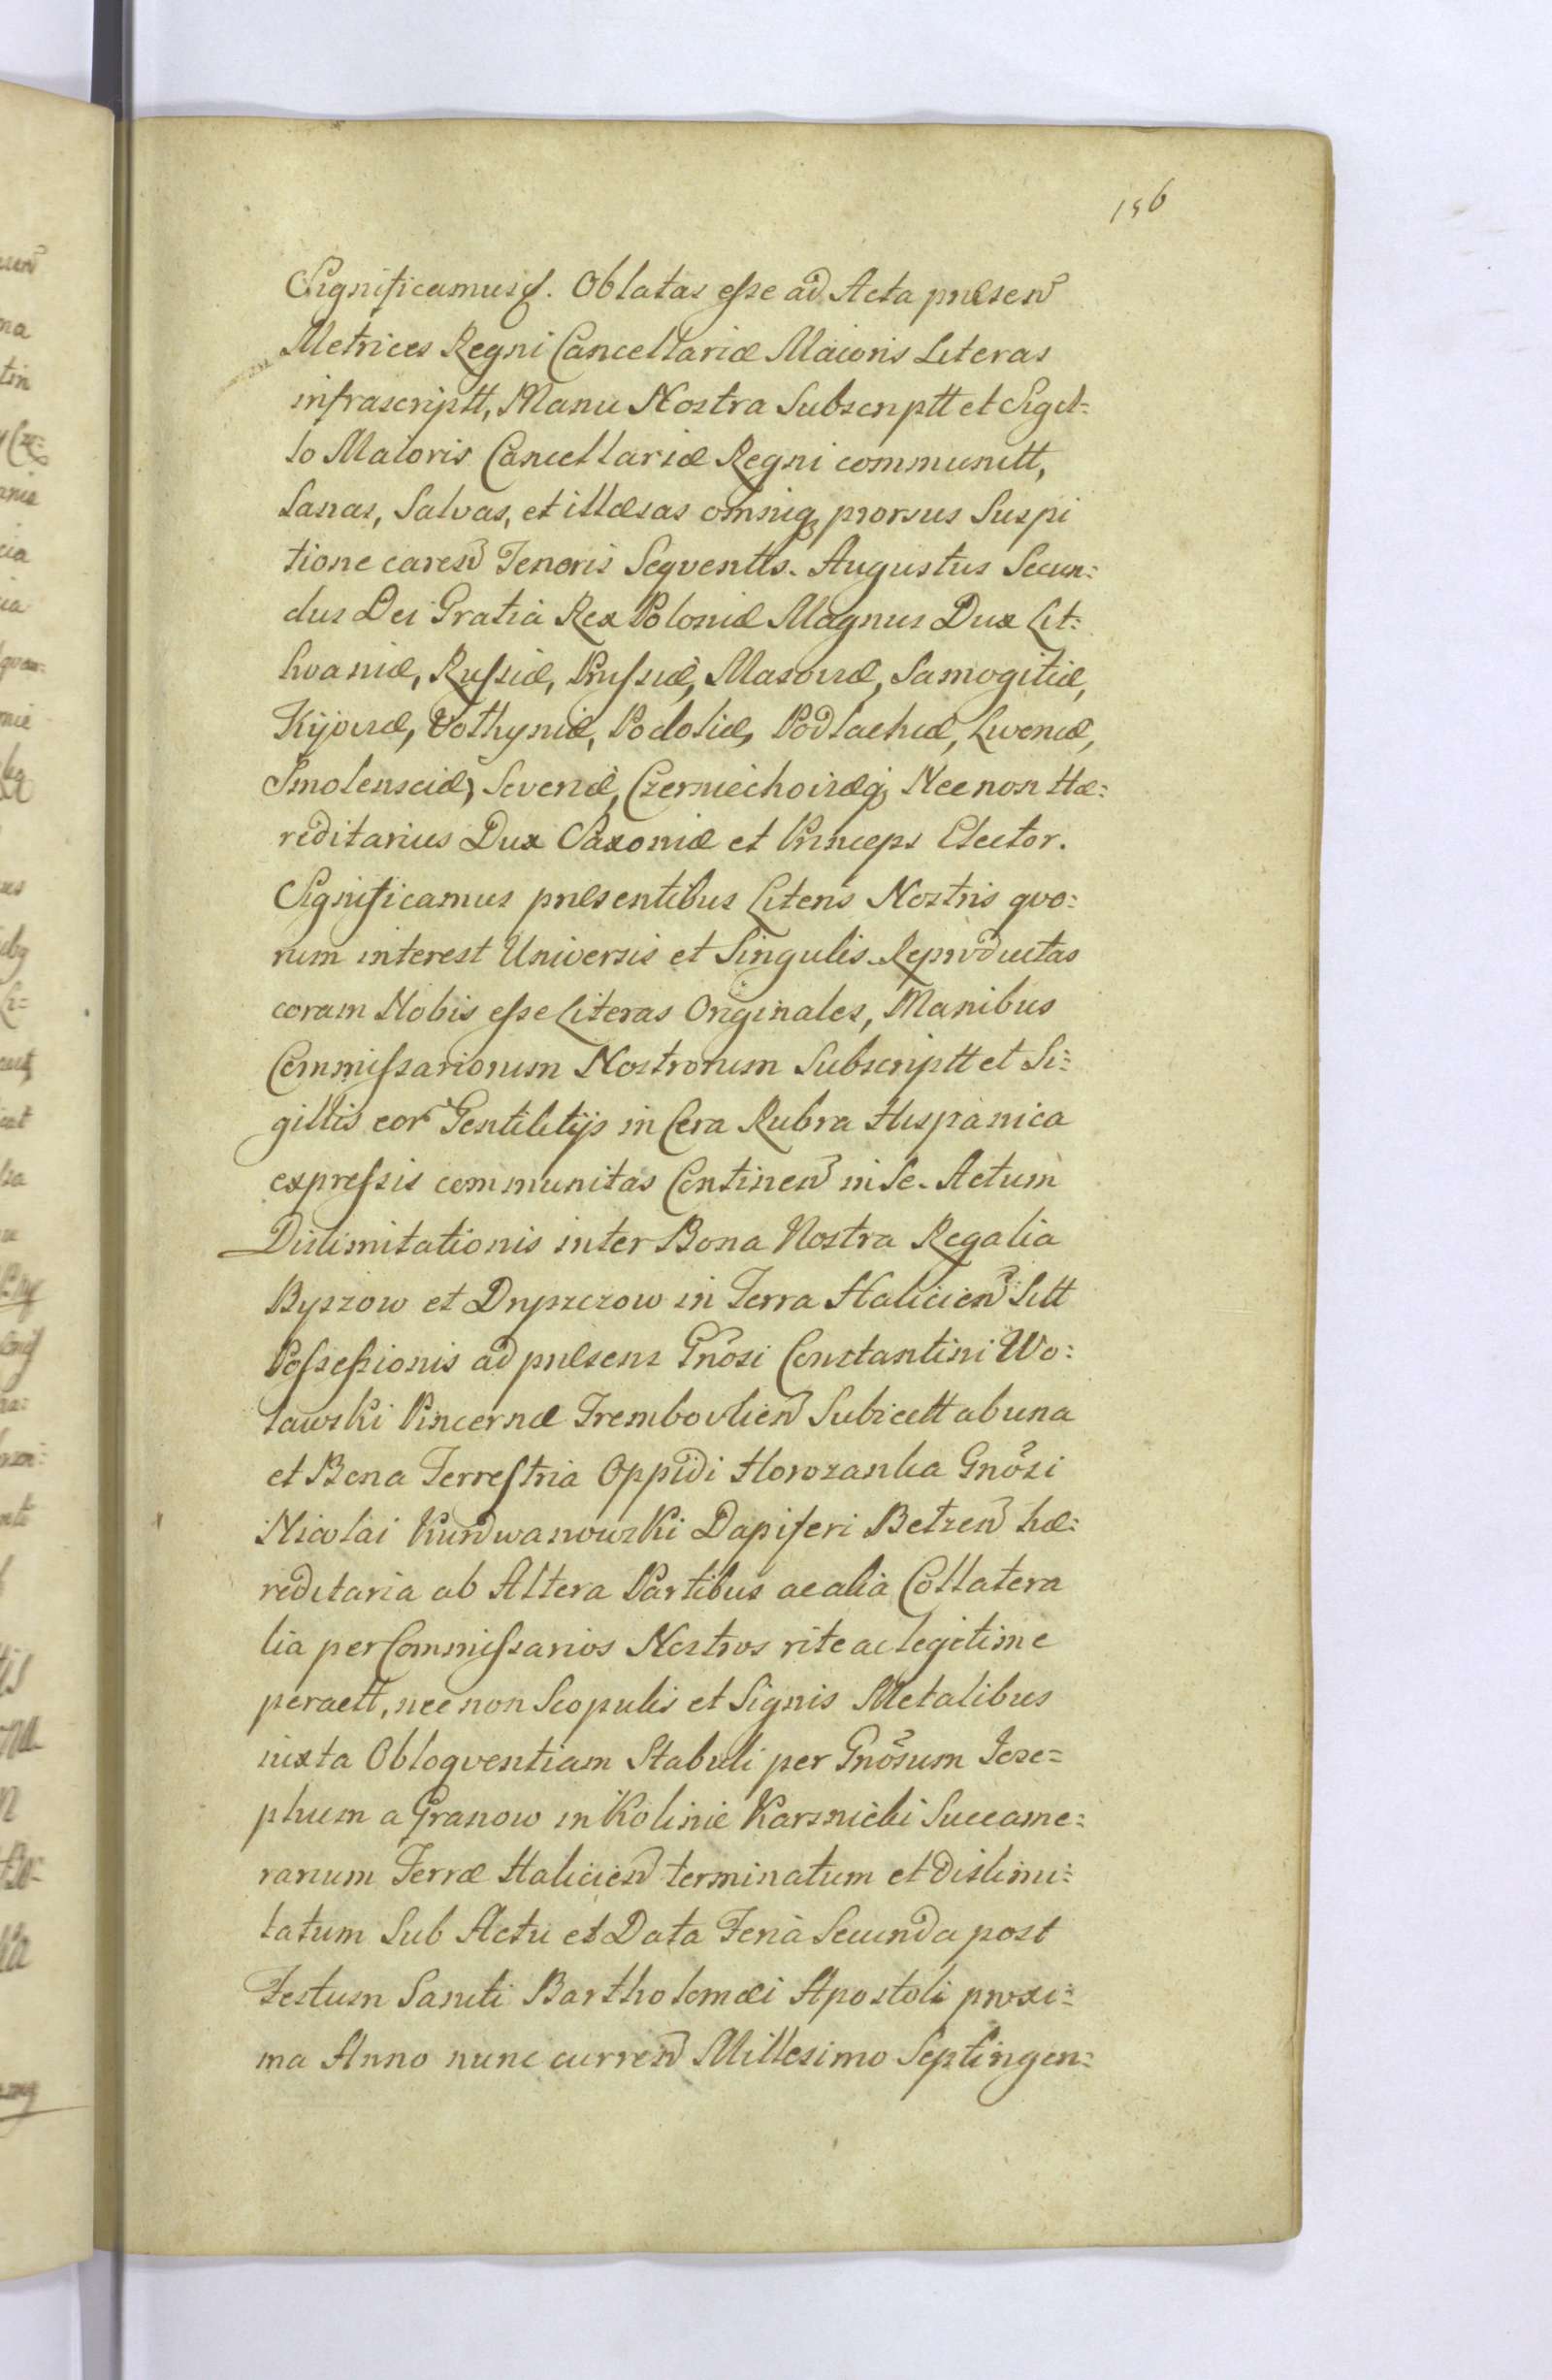 156
Significamus. Oblatas esse ad Acta pnlsen
Metrices Regni Cancellariæ Maioris Literas
infrascriptt, Manu Nostra Subscriptt et Sigil=
lo Maioris Cancellariæ Regni communitt,
Sanas, Salvas, et illæsas omniq prorsus Suspi
tione caren Tenoris Seqventis. Augustus Secun=
dus Dei Gratia Rex Poloniæ Magnus Dux Lit=
hvaniæ, Russiæ, Prussiæ, Masoviæ, Samogitiæ,
Kijoviæ, Volhyniæ, Podoliæ, Podlachiæ, Livoniæ,
Smolensciæ, Severiæ, Czerniechoviæq Nec non Hæ=
reditarius Dux Saxoniæ et Princeps Elector.
Significamus pnlsentibus Literis Nostris qvo=
rum interest Universis et Singulis. Reproductas
coram Nobis esse Literas Originales, Manibus
Commissariorum Nostrorum Subscriptt et Si=
gillis eor Gentilitijs in Cera Rubra Hispanica
expressis communitas Continen in Se. Actum
Dislimitationis inter Bona Nostra Regalia
Byszow et Dryszczow in Terra Halicien Sitt
Possessionis ad pnlsens Gnosi Constantini Wo=
lawski Pincernæ Trembovlien Subiectt ab una
et Bona Terrestria Oppidi Horozanka Gnosi
Nicolai Kurdwanowski Dapiferi Belzen hæ=
reditaria ab Altera Partibus ac alia Collatera
lia per Commissarios Nostros rite ac legitime
peractt, nec non Scopulis et Signis Metalibus
iuxta Obloqventiam Stabuli per Gnosum Jose=
phum a Granow in Kolinie Karsnicki Succame=
rarium Terræ Halicien terminatum et dislimi=
tatum Sub Actu et Data Feria Secunda post
Festum Sancti Bartholomæi Apostoli proxi=
ma Anno nunc curren Millesimo Septingen=